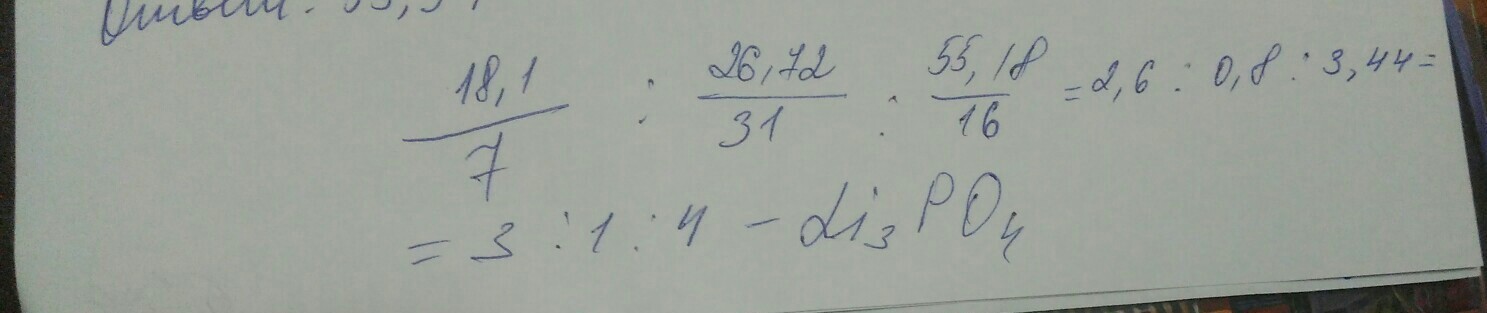 Ответ:
18,1/7 : 26,72/31 : 55,18/16 = 2,6 : 0,8 : 3,44 =
= 3 : 1 : 4 – Li₃PO₄